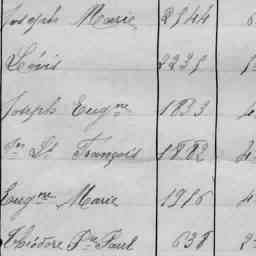 Joseph Marie 2544
Louis 2235
Joseph Eugne 1833 4
Jn Bt François 1882 4
Eugne Marie 1916 4
Théodore Fr. Paul 638